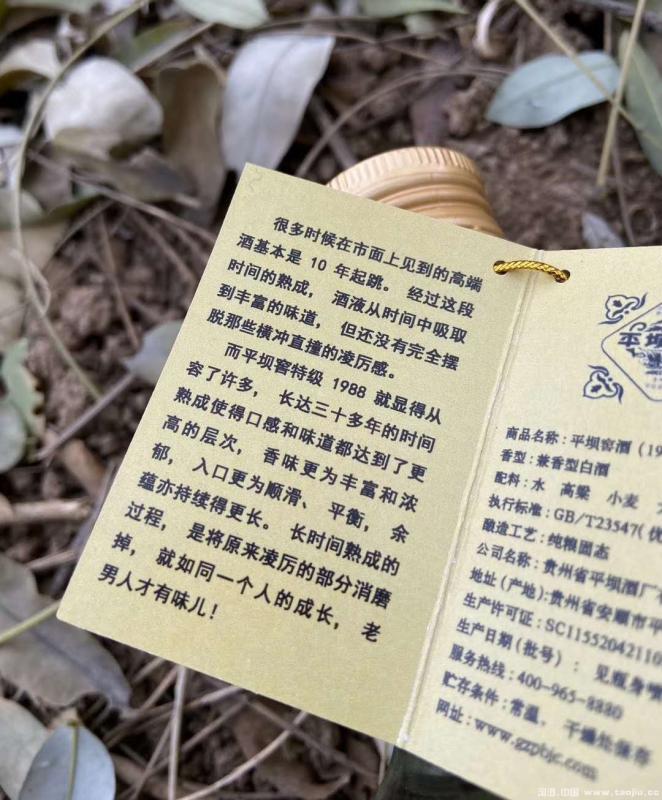 很多时候在市面上见到的高端
酒基本是 10 年起跳。 经过这段
时间的熟成， 酒液从时间中吸取
到丰富的味道， 但还没有完全摆
脱那些横冲直撞的凌厉感。
而平坝窖特级 1988 就显得从
容了许多， 长达三十多年的时间
熟成使得口感和味道都达到了更
高的层次， 香味更为丰富和浓
郁， 入口更为顺滑、 平衡， 余
蕴亦持续得更长。 长时间熟成的
过程， 是将原来凌厉的部分消磨
掉， 就如同一个人的成长， 老
男人才有味儿！
平坝
商品名称：平坝窖酒（19
香型：兼香型白酒
配料：水 高粱 小麦
执行标准：GB/T23547(优
酿造工艺：纯粮固态
公司名称：贵州省平坝酒厂
地址(产地):贵州省安顺市平
生产许可证：SC1155204211
生产日期(批号)： 见瓶身
服务热线：400-965-8880
贮存条件：常温、 干燥处保存
网址：www.gzpbjc.com
www.taojiu.cc